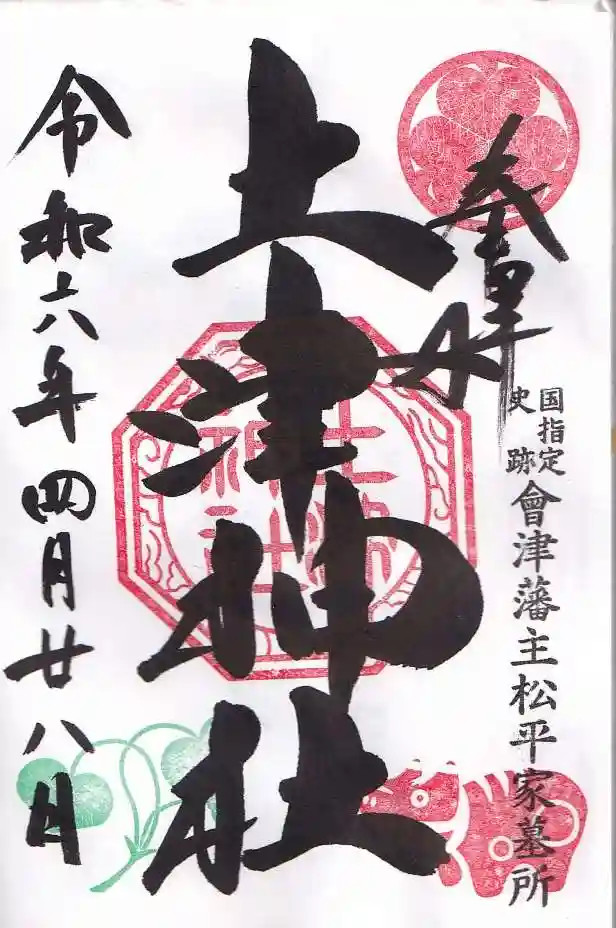 奉拝
国指定
史跡
會津藩主松平家墓所
土津神社
土津神社
令和六年四月廿八日